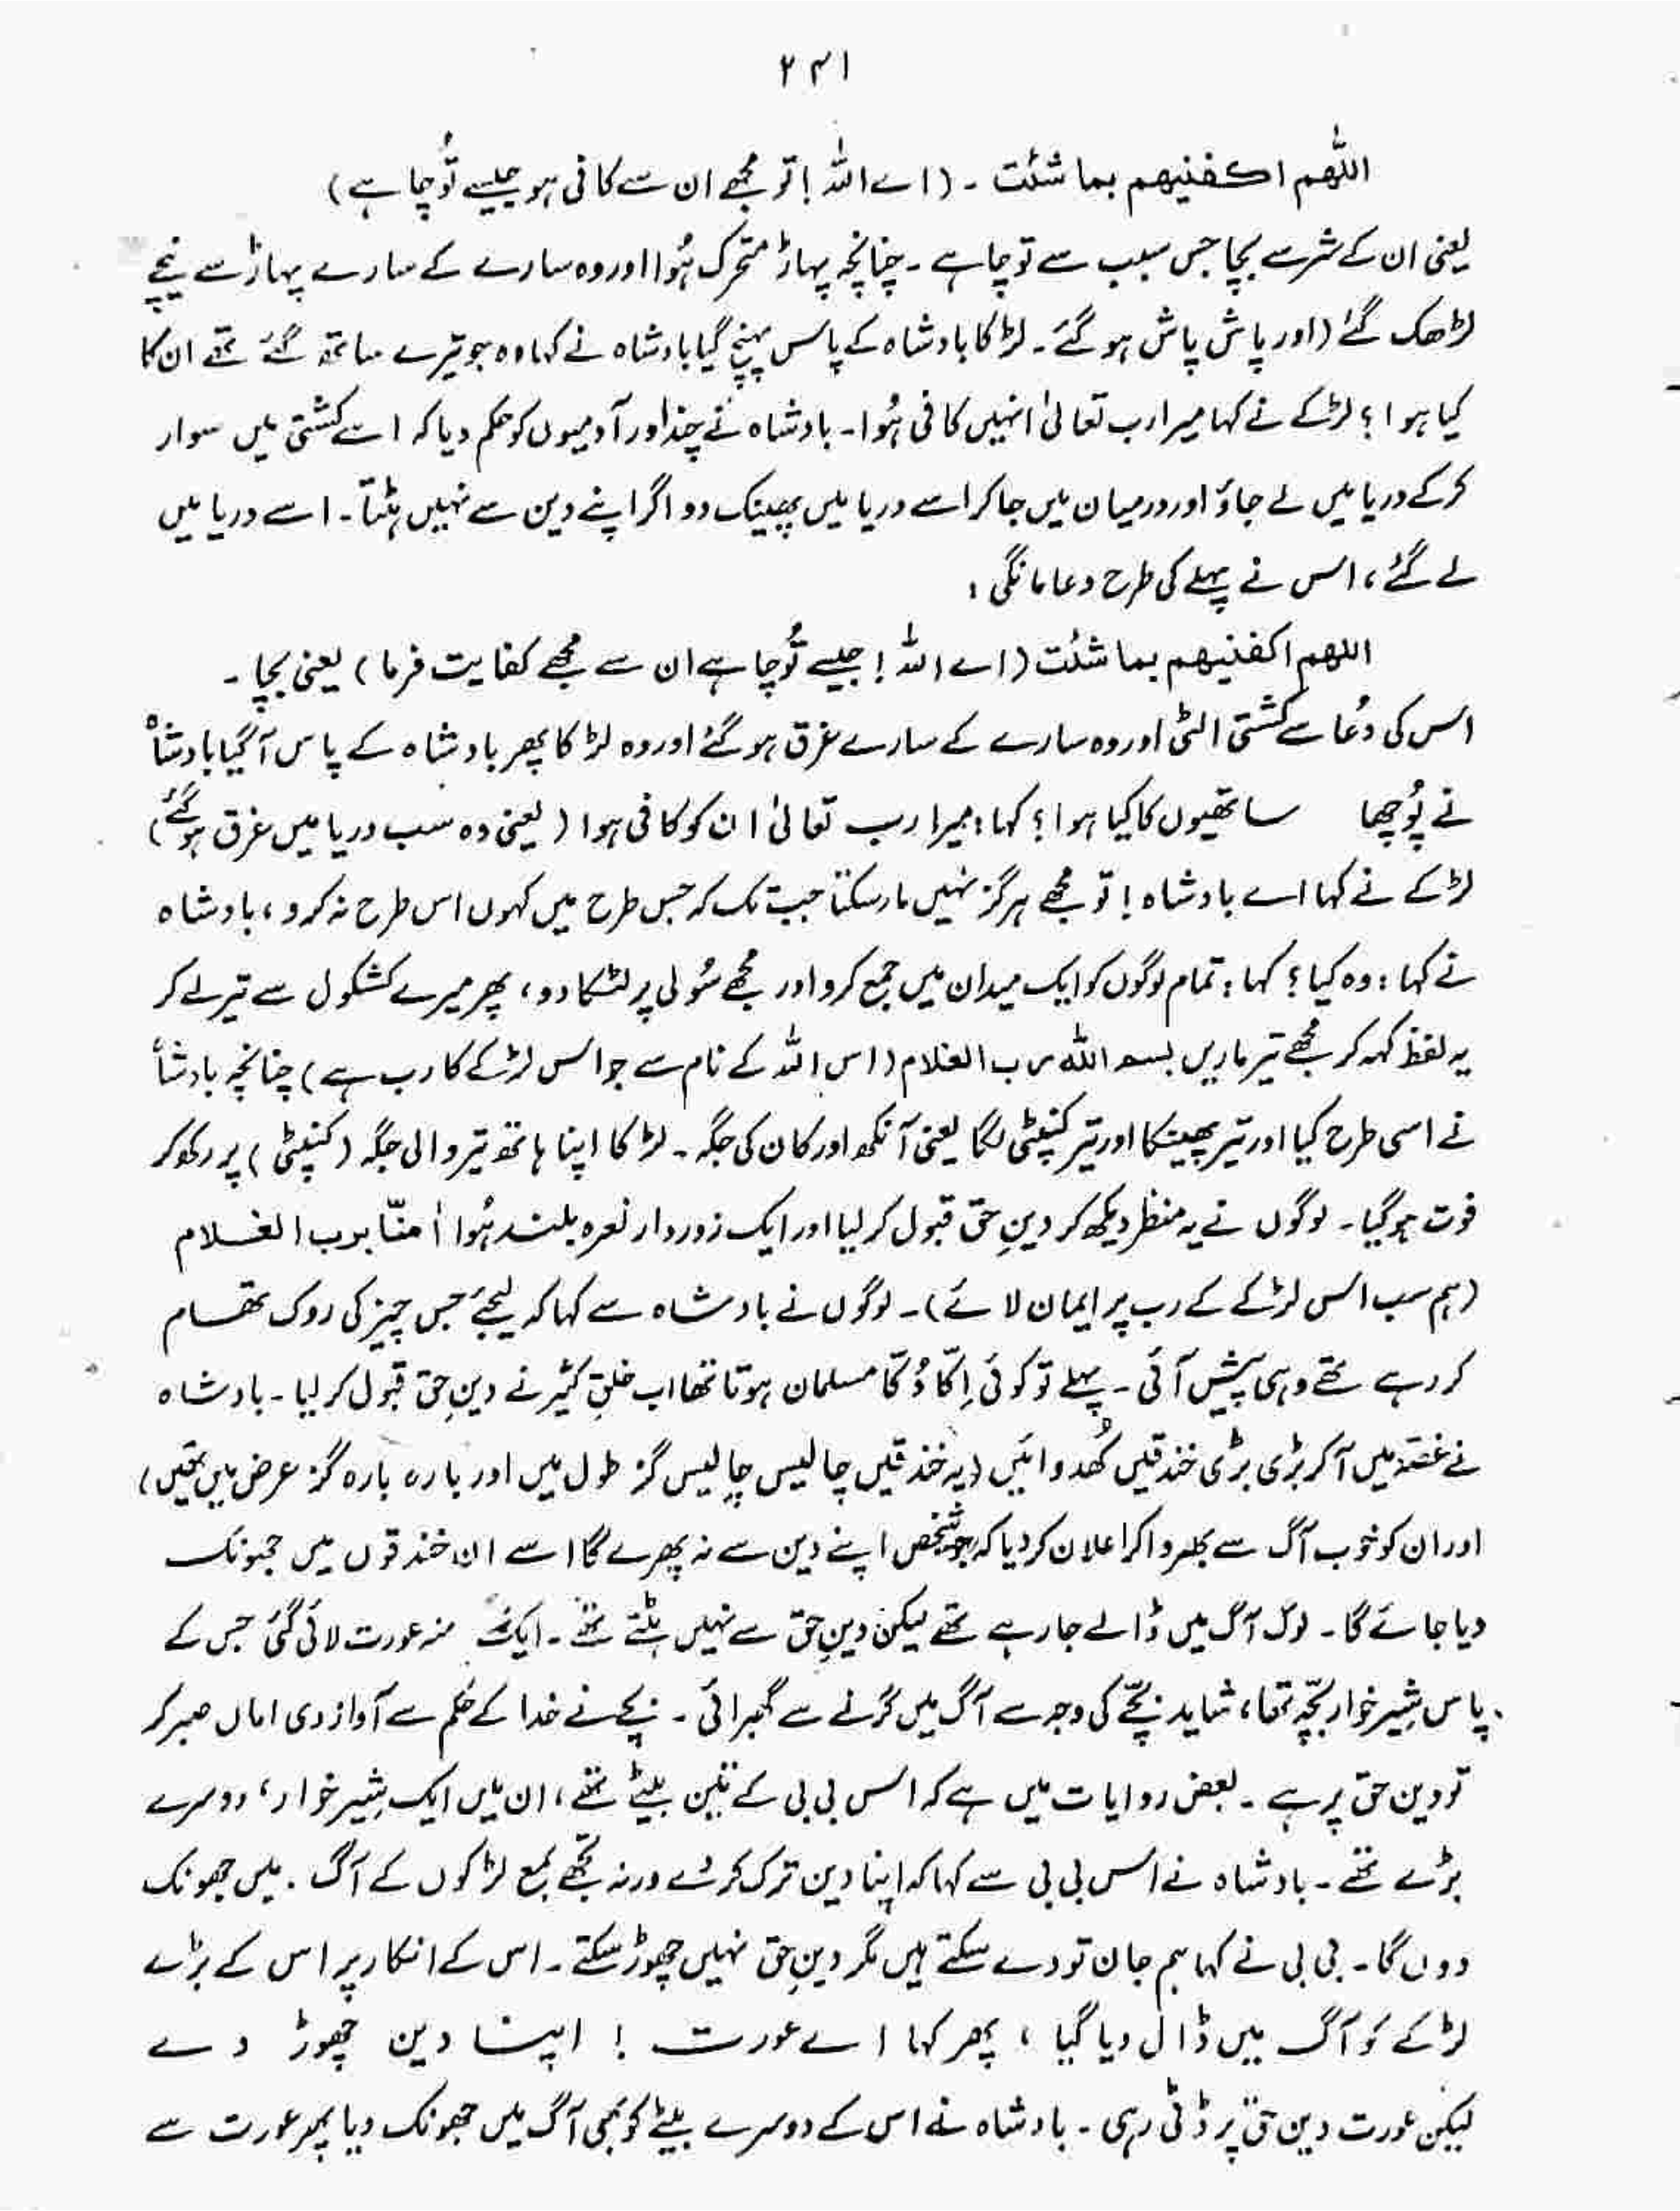 ۲۳۱
اللّٰھم اکفنیھم بما شئت ۔ (اے اللہ! تو مجھے ان سے کافی ہو جیسے تُو چاہے)
یعنی ان کے شر سے بچا جس سبب سے تو چاہے ۔ چنانچہ پہاڑ متحرک ہُوا اور وہ سارے کے سارے پہاڑ سے نیچے
لڑھک گئے (اور پاش پاش ہو گئے ۔ لڑکا بادشاہ کے پاس پہنچ گیا بادشاہ نے کہا وہ جو تیرے ساتھ گئے تھے ان کا
کیا ہوا؟ لڑکے نے کہا میرا رب تعالیٰ انہیں کافی ہُوا ۔ بادشاہ نے چند اور آدمیوں کو حکم دیا کہ اسے کشتی میں سوار
کر کے دریا میں لے جاؤ اور درمیان میں جا کر اسے دریا میں پھینک دو اگر اپنے دین سے نہیں ہٹتا ۔ اسے دریا میں
لے گئے، اس نے پہلے کی طرح دعا مانگی :
اللھم اکفنیھم بما شئت (اے اللہ! جیسے تُو چاہے ان سے مجھے کفایت فرما) یعنی بچا ۔
اس کی دُعا سے کشتی الٹی اور وہ سارے کے سارے غرق ہو گئے اور وہ لڑکا پھر بادشاہ کے پاس آ گیا بادشاہ
نے پُوچھا ساتھیوں کا کیا ہوا؟ کہا: میرا رب تعالیٰ ان کو کافی ہوا (یعنی وہ سب دریا میں غرق ہو گئے)
لڑکے نے کہا اے بادشاہ! تو مجھے ہرگز نہیں مار سکتا جب تک کہ جس طرح میں کہوں اس طرح نہ کرو، بادشاہ
نے کہا: وہ کیا؟ کہا: تمام لوگوں کو ایک میدان میں جمع کرو اور مجھے سُولی پر لٹکا دو، پھر میرے کشکول سے تیر لے کر
یہ لفظ کہہ کر مجھے تیر ماریں بسم اللہ رب الغلام (اس اللہ کے نام سے جو اس لڑکے کا رب ہے) چنانچہ بادشاہ
نے اسی طرح کیا اور تیر پھینکا اور تیر کنپٹی لگا یعنی آنکھ اور کان کی جگہ ۔ لڑکا اپنا ہاتھ تیر والی جگہ (کنپٹی) پر رکھ کر
فوت ہو گیا ۔ لوگوں نے یہ منظر دیکھ کر دینِ حق قبول کر لیا اور ایک زوردار نعرہ بلند ہُوا اٰمنّا برب الغلام
(ہم سب اس لڑکے کے رب پر ایمان لائے) ۔ لوگوں نے بادشاہ سے کہا کہ لیجئے جس چیز کی روک تھام
کر رہے تھے وہی پیش آئی ۔ پہلے تو کوئی اِکّا دُکّا مسلمان ہوتا تھا اب خلقِ کثیر نے دینِ حق قبول کر لیا ۔ بادشاہ
نے غصّہ میں آ کر بڑی بڑی خندقیں کھُدوائیں (یہ خندقیں چالیس چالیس گز طول میں اور بارہ بارہ گز عرض میں تھیں)
اور ان کو خوب آگ سے بھروا کر اعلان کر دیا کہ جو شخص اپنے دین سے نہ پھرے گا اسے ان خندقوں میں جھونک
دیا جائے گا ۔ لوگ آگ میں ڈالے جا رہے تھے لیکن دینِ حق سے نہیں ہٹتے تھے ۔ ایک عورت لائی گئی جس کے
پاس شیر خوار بچّہ تھا، شاید بچّے کی وجہ سے آگ میں گرنے سے گھبرائی ۔ بچے نے خدا کے حکم سے آواز دی اماں صبر کر
تو دین حق پر ہے ۔ بعض روایات میں ہے کہ اس بی بی کے تین بیٹے تھے، ان میں ایک شیر خوار، دوسرے
بڑے تھے ۔ بادشاہ نے اس بی بی سے کہا کہ اپنا دین ترک کر دے ورنہ تجھے بمع لڑکوں کے آگ میں جھونک
دوں گا ۔ بی بی نے کہا ہم جان تو دے سکتے ہیں مگر دینِ حق نہیں چھوڑ سکتے ۔ اس کے انکار پر اس کے بڑے
لڑکے کو آگ میں ڈال دیا گیا، پھر کہا اے عورت! اپنا دین چھوڑ دے
لیکن عورت دین حق پر ڈٹی رہی ۔ بادشاہ نے اس کے دوسرے بیٹے کو بھی آگ میں جھونک دیا پھر عورت سے